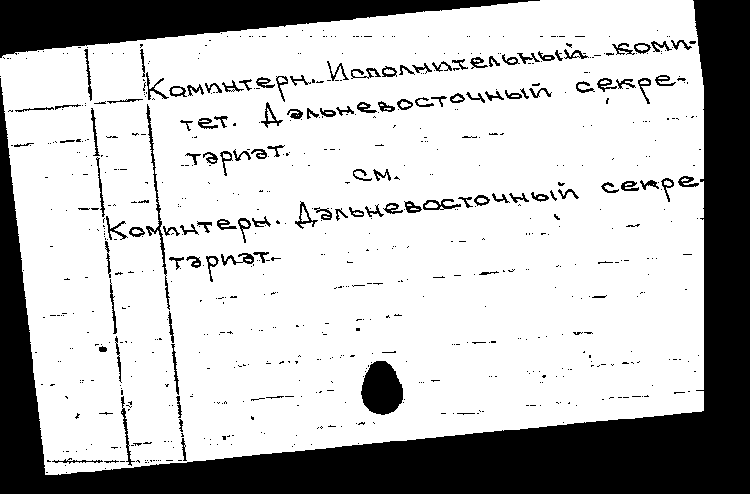 Коминтерн. Исполнительный коми-
тет. Дальневосточный секре-
тариат.
см.
Коминтерн. Дальневосточный секре-
тариат.